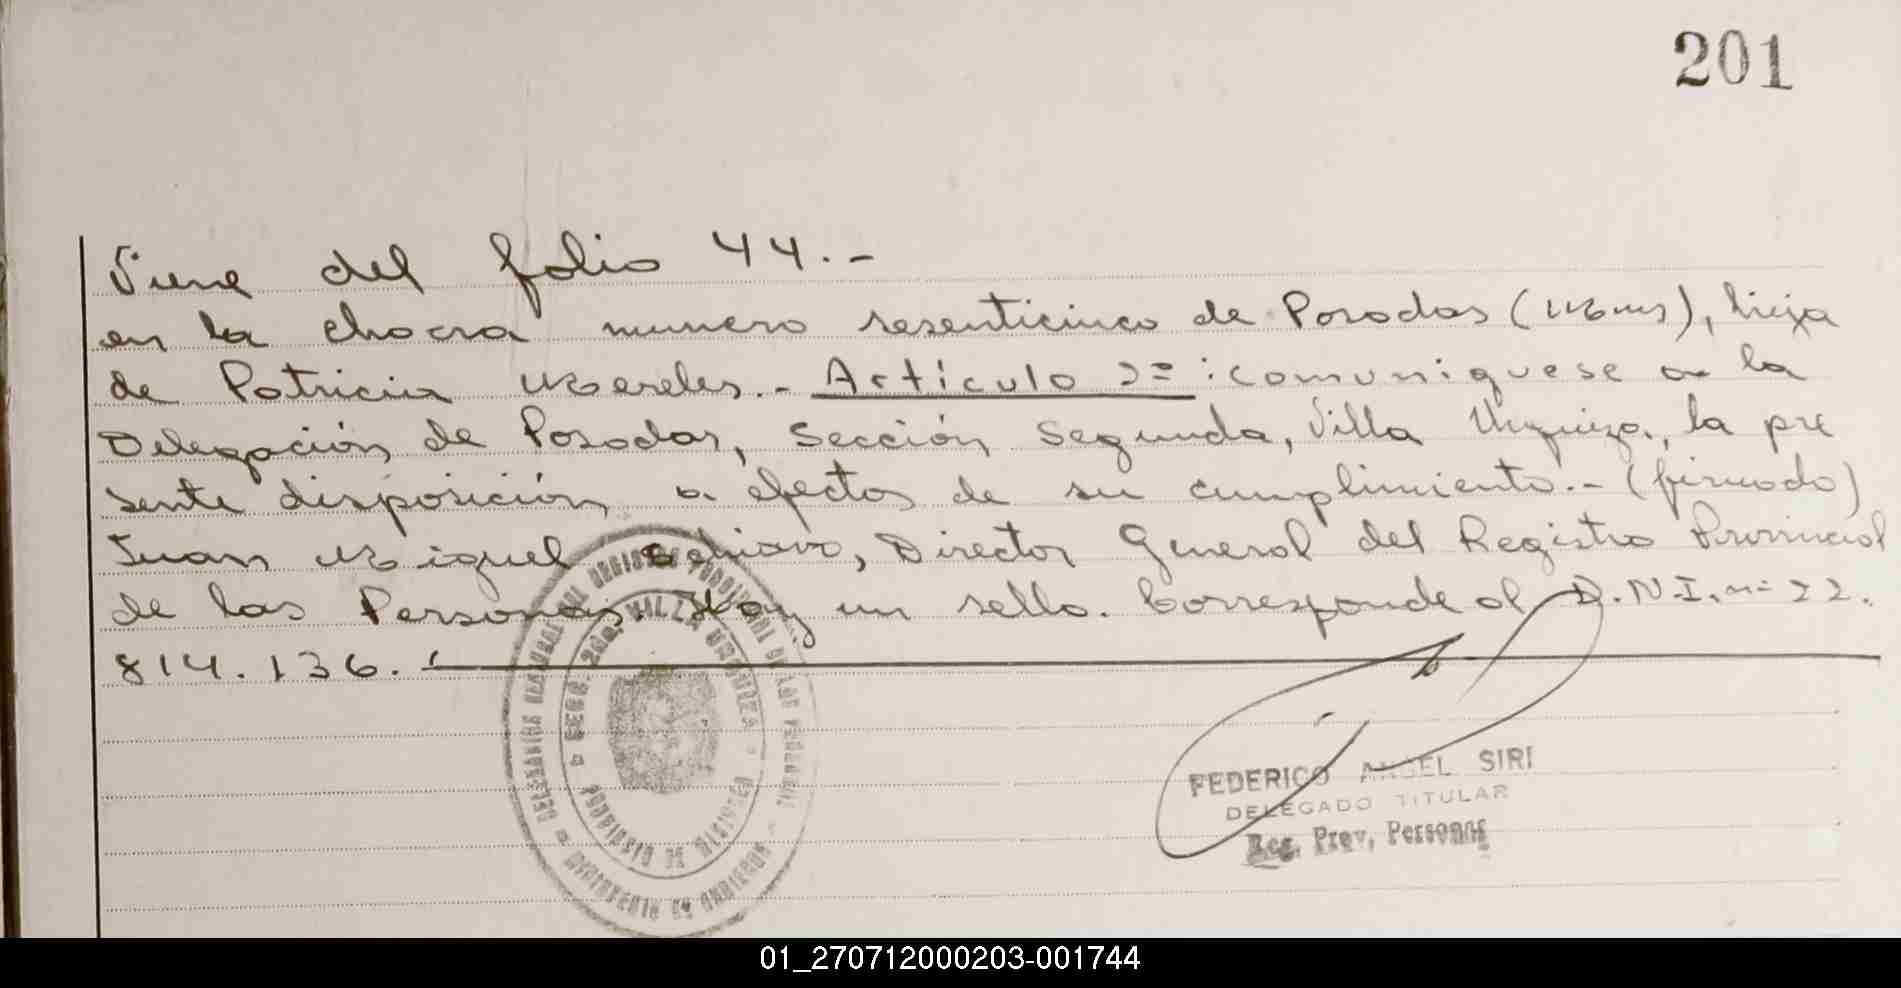 201
Viene del folio 44.-
en la chacra numero sesenticinco de Posadas (Mnes), hija
de Patricia Mereles.- Artículo 2=: comuniquese a la
Delegación de Posadas, Sección Segunda, Villa Urquiza, la pre
sente disposición a efectos de su cumplimiento.- (firmado)
Juan Miguel, Director General del Registro Provincial
de las Personas. Hay un sello. Corresponde al D.N.I. n= 22.
814.136.-
FEDERICO ANGEL SIRI
DELEGADO TITULAR
Reg. Prov, Personas
SECC. 2da. VILLA URQUIZA
PROVINCIA DE MISIONES
MINISTERIO DE GOBIERNO
01_270712000203-001744